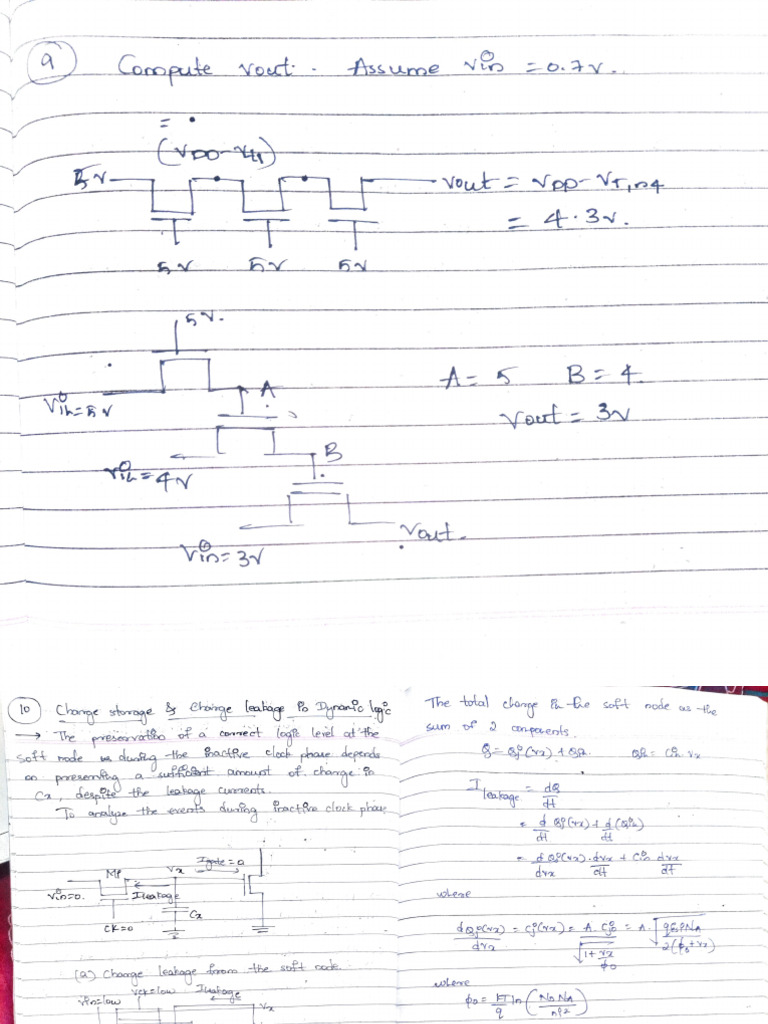 9 Compute vout. Assume vin = 0.7v.
= .
(VDD-Vt1)
5v
vout = VDD-VT,n4
= 4.3v.
5v 5v 5v
5v.
Vin=5v
A
A = 5 B = 4
vout = 3v
B
vin = 4v
vout.
vin = 3v
10 Charge storage & Charge leakage in Dynamic logic
→ The preservation of a correct logic level at the
soft node during the inactive clock phase depends
on preserving a sufficient amount of charge in
Cx, despite the leakage currents.
To analyze the events during inactive clock phase
MP Vx Igate=0
vin=0. Ileakage
Cx
CK=0
(a) Charge leakage from the soft node.
vin=low vck=low Ileakage Vx
The total charge in the soft node as the
sum of 2 components.
Q = Qj(vx) + Qin Qin = Cin vx
Ileakage = dQ/dt
= d/dt Qj(vx) + d/dt (Qin)
= dQj(vx)/dvx . dvx/dt + Cin dvx/dt
where
dQj(vx)/dvx = Cj(vx) = A.Cj0/√(1+vx/φ0) = A.√(qεsiNA/2(φ0+vx))
where
φ0 = KT/q ln (NDNA/ni²)